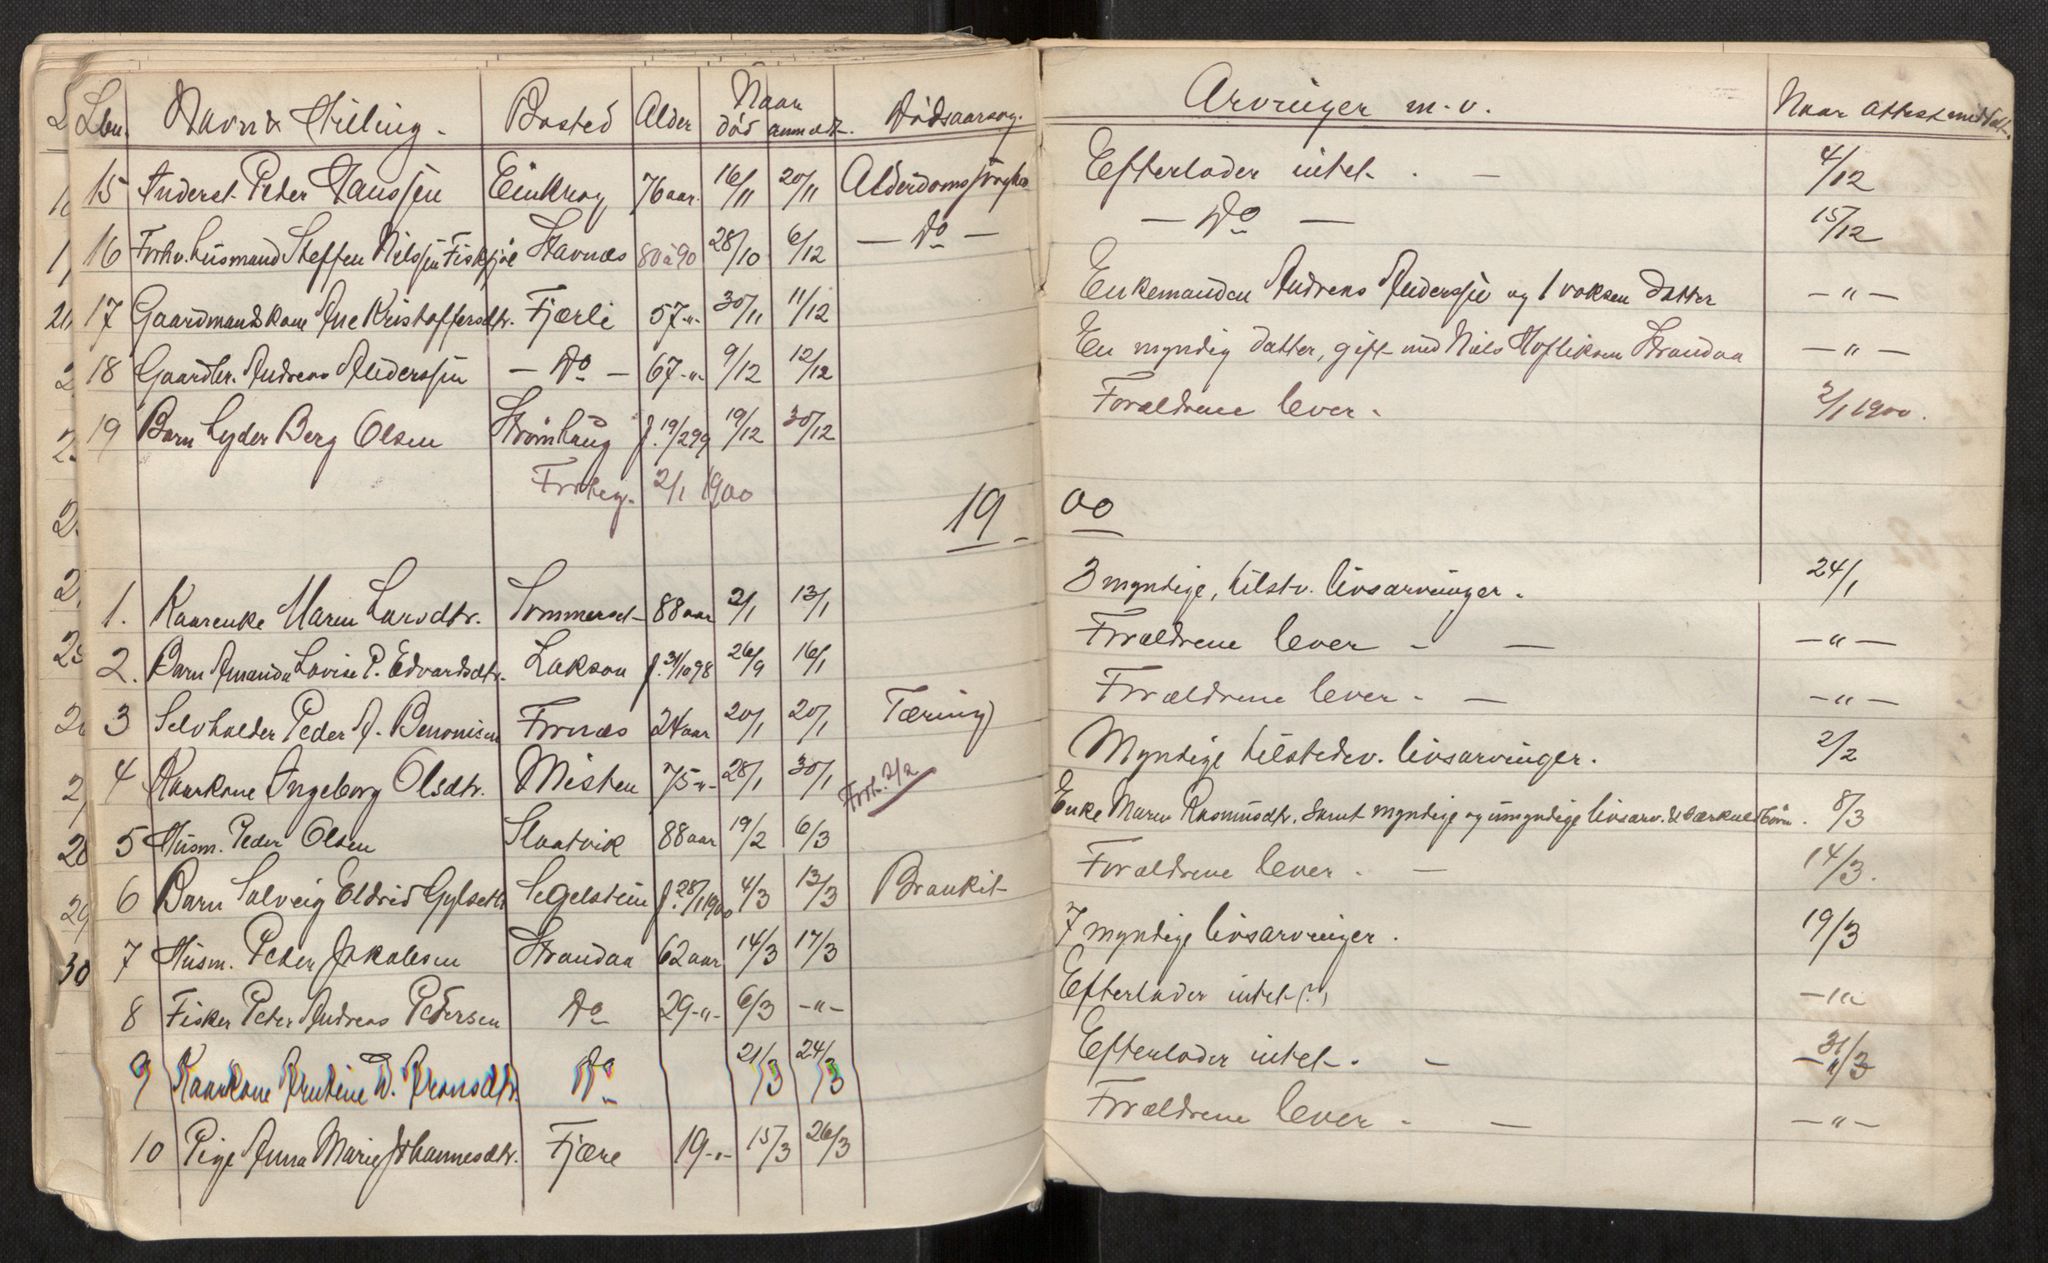 Lbn. Navn & Stilling. Bosted Alder Naar død anmeldt. Dødsaarsag. Arvinger m.v. Naar attest meddelt.
15 Inderst. Peder Hanssen 76 aar. 16/11 20/11 Efterlader intet. — 4/12
16 Forhv. husmand Steffen Nilssen Stavnæs 80 à 90 28/10 6/12 — Do — — Do — 15/12
17 Gaardmandskone Ane Kristoffersdtr. Fjærli 57 -"- 30/11 11/12 Enkemanden Andreas Anderssen og 1 voksen datter — " —
18 Gaardbr. Andreas Anderssen — Do — 67 -"- 9/12 12/12 En myndig datter, gift med Niels Strandaa — " —
19 Barn Lyder Berg Olsen Strømhaug f. 19/2 99 19/12 30/12 Forældrene lever. 2/1 1900.
2/1 1900
19 00
1. Kaarenke Maren Larsdtr. Sommerset 88 aar 2/1 13/1 3 myndige, tilstv. livsarvinger. 24/1
2. Barn Amanda Lovise P. Edvardsdtr. f. 31/10 98 26/9 16/1 Forældrene lever - — — " —
3 Selvholder Peder A. Benonisen Fornæs 24 aar 20/1 20/1 Tæring Forældrene lever. — — " —
4 Kaarkone Ingeborg Olsdtr. Misten 75 -"- 28/1 30/1 Forh. 2/2 Myndige tilstedev. livsarvinger. 2/2
5 Husm. Peder Olsen Slaatvik 88 aar 19/2 6/3 Enke Maren Rasmusdtr. samt myndige og umyndige livsarv. & særkuldsbørn. 8/3
6 Barn Solveig Eldrid Segelstein f. 28/1 1900 4/3 13/3 Bronkit Forældrene lever. — 14/3.
7 Husm. Peder Jakobsen Strandaa 62 aar 14/3 17/3 7 myndige livsarvinger. 19/3
8 Fisker Peder Andreas Pedersen Do 29 -"- 6/3 -"- Efterlader intet (?) — " —
9 Kaarkone D. Aronsdtr. Do 21/3 24/3 Efterlader intet. — 31/3
10 Pige Anna Marie Johannesdtr. Fjære 19 -"- 15/3 26/3 Forældrene lever. — — " —